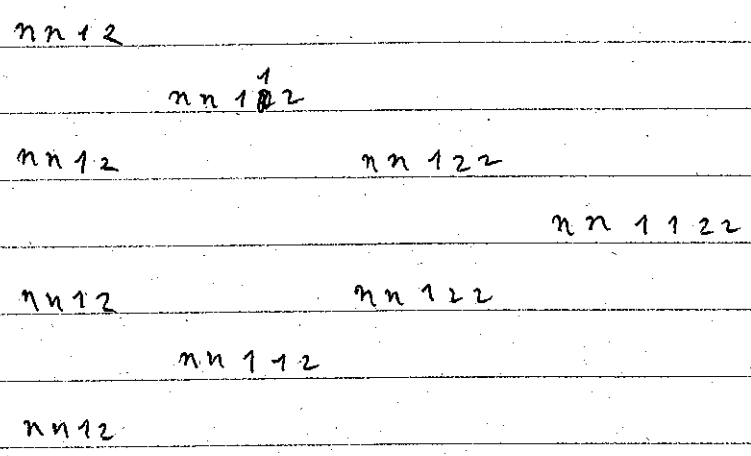 nn12
nn112
nn12 nn122
nn1122
nn12 nn122
nn112
nn12